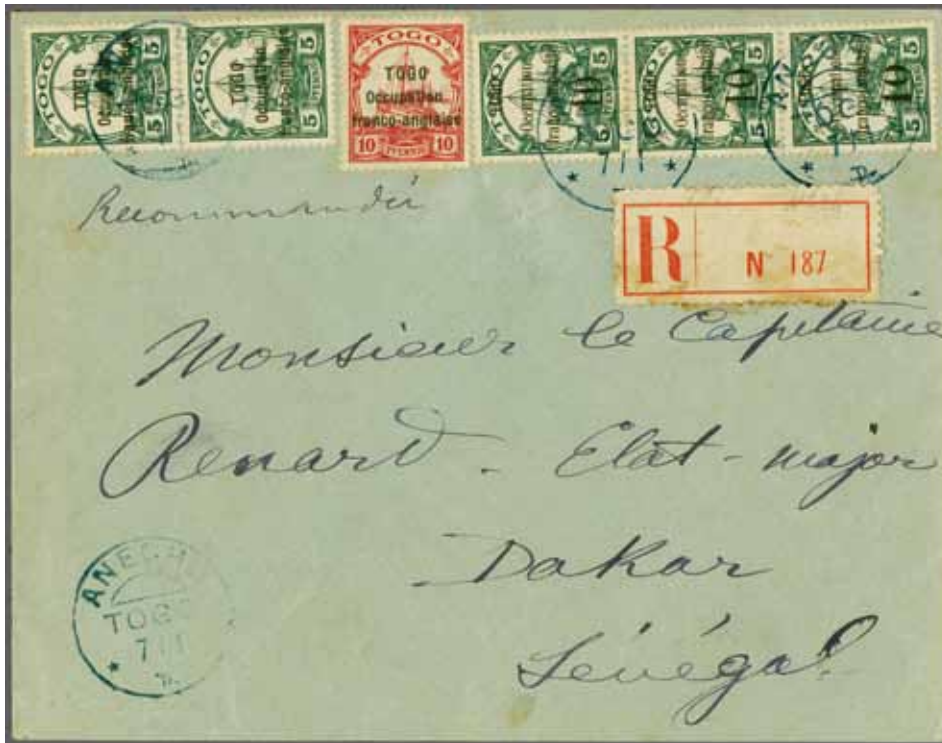 TOGO 5 5 TOGO Occupation franco-anglaise
TOGO 5 5 TOGO Occupation franco-anglaise
TOGO TOGO Occupation franco-anglaise 10 PFENNIG 10
TOGO 5 5 Occupation franco-anglaise 10
TOGO 5 5 Occupation franco-anglaise 10
TOGO 5 5 Occupation franco-anglaise 10
* 7/1 *
Recommandée
R N 187
Monsieur le Capitaine
Renard - Etat-major
Dakar
Sénégal
ANECHO
TOGO
7/1
*